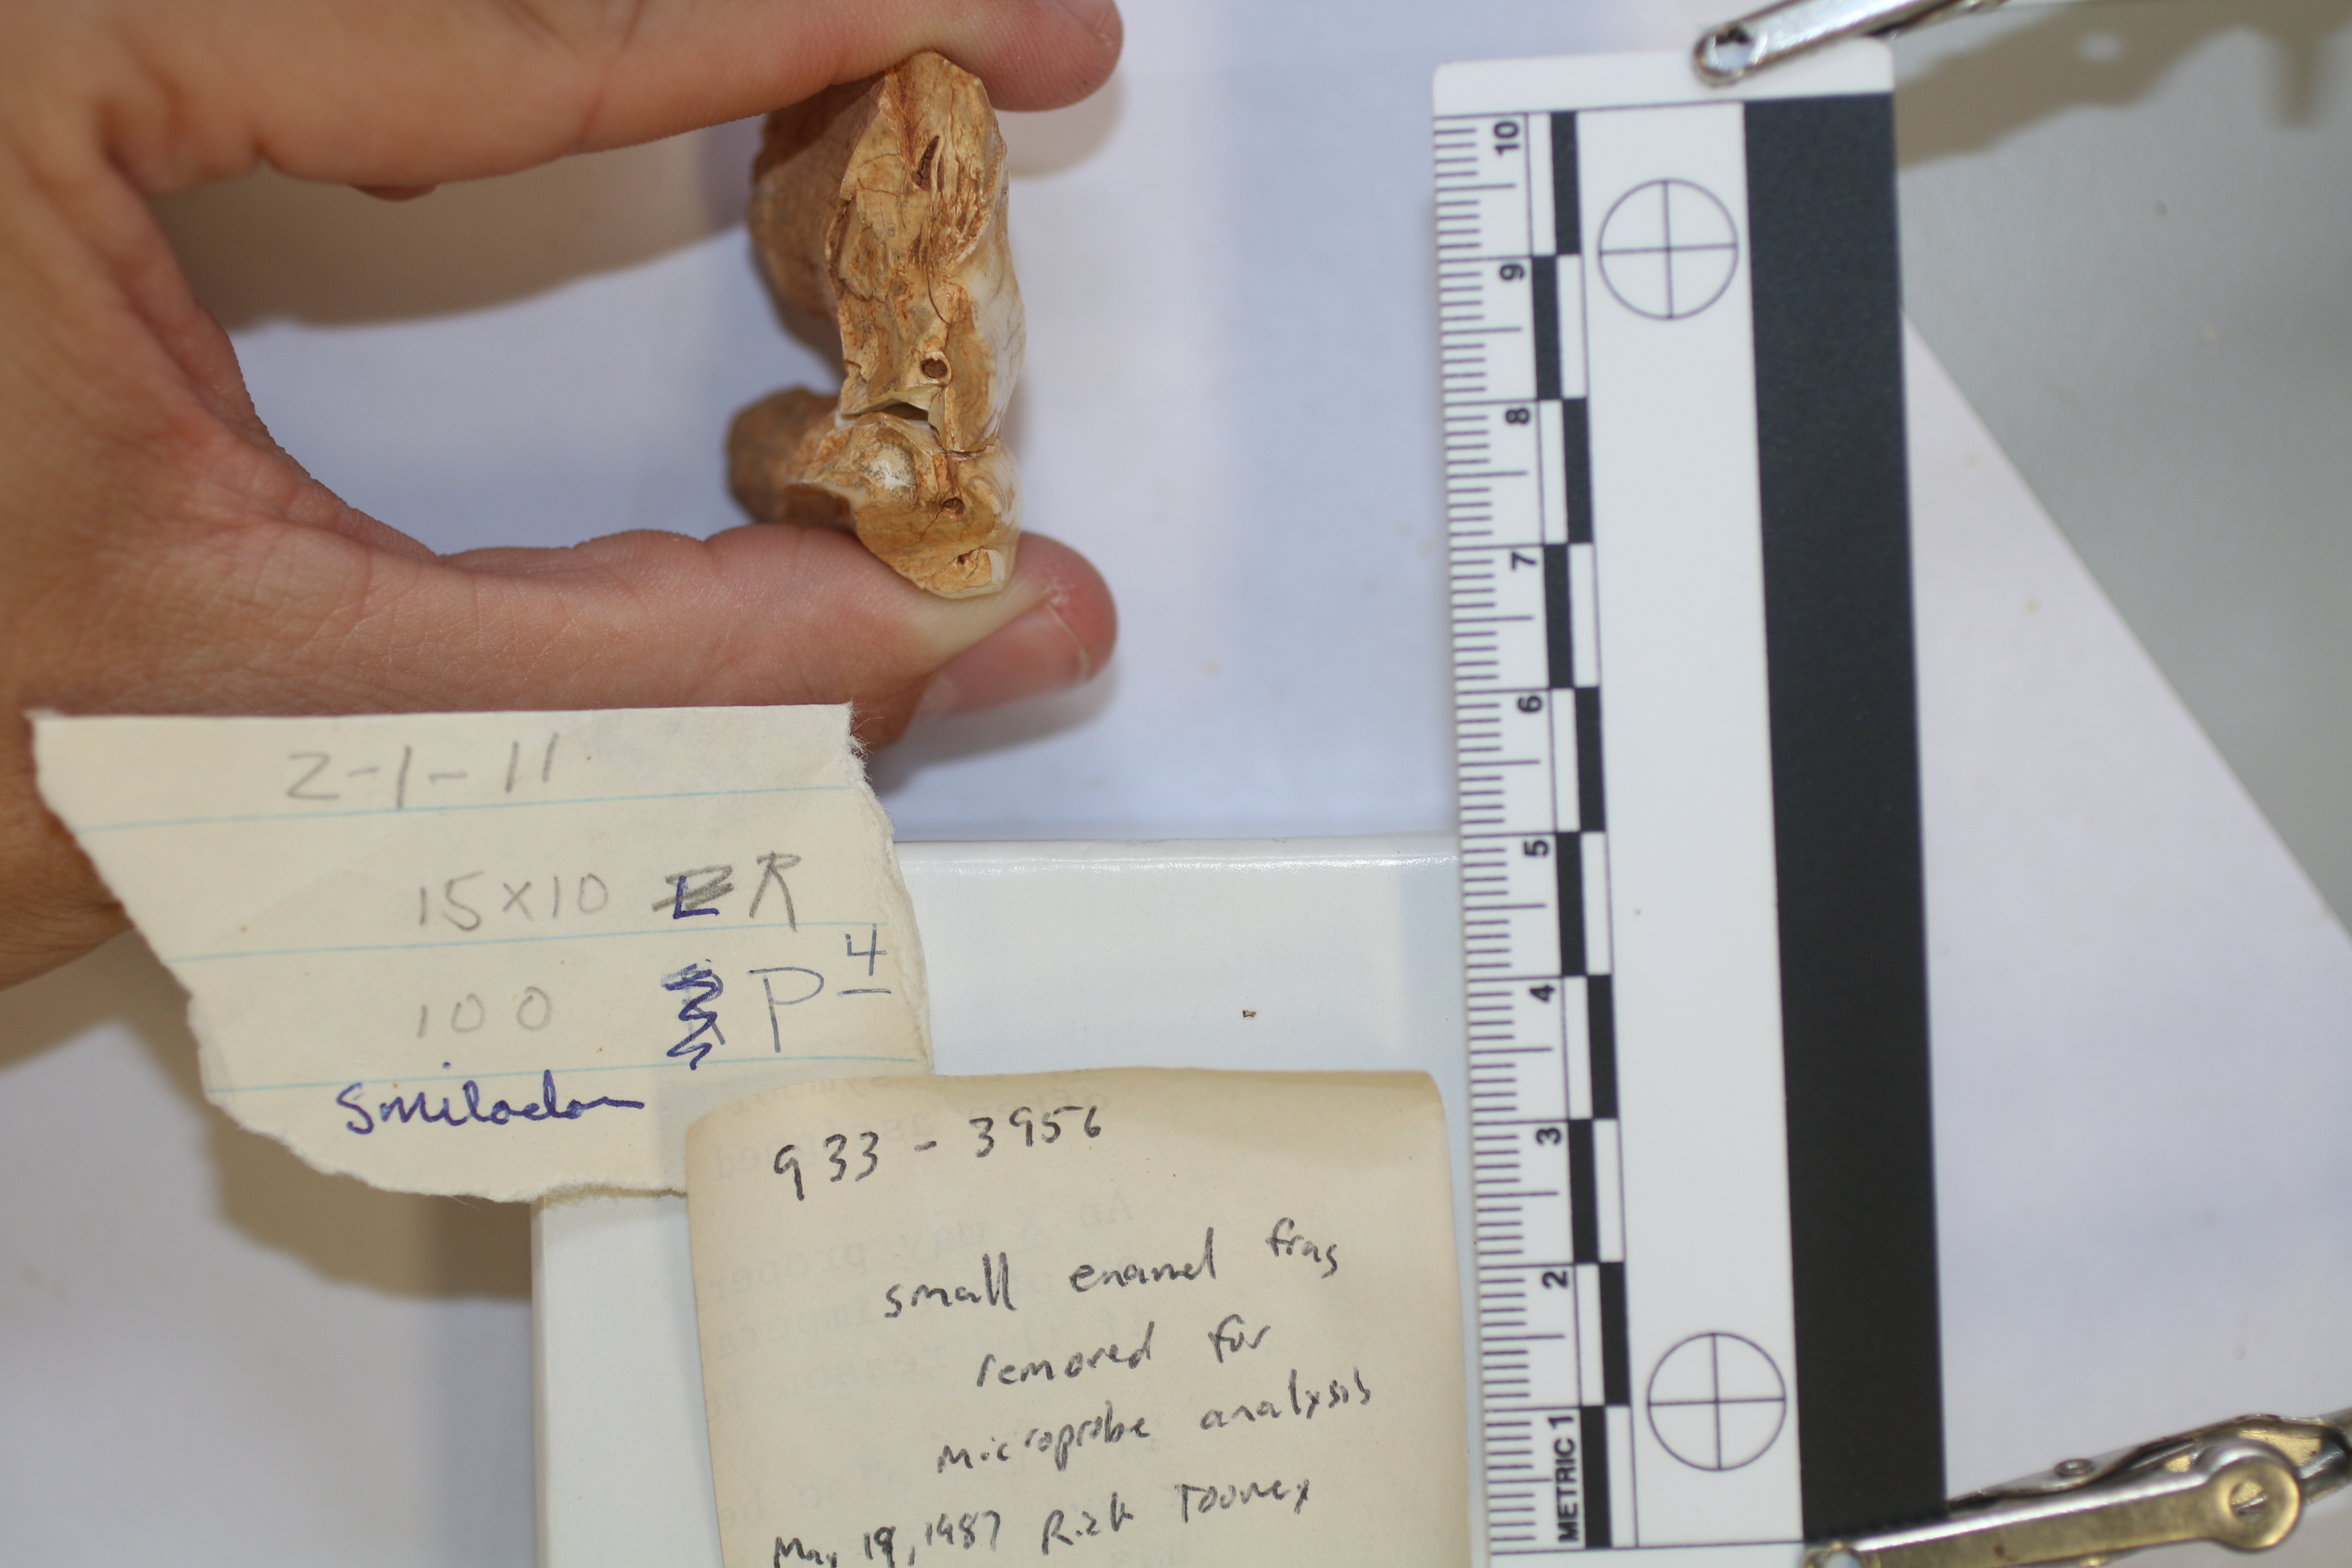 2-1-11
15 x 10 R
100 P4
Smilodon
933-3956
small enamel frag
removed for
microprobe analysis
May 19, 1987 Rick Toomey
METRIC 1 2 3 4 5 6 7 8 9 10